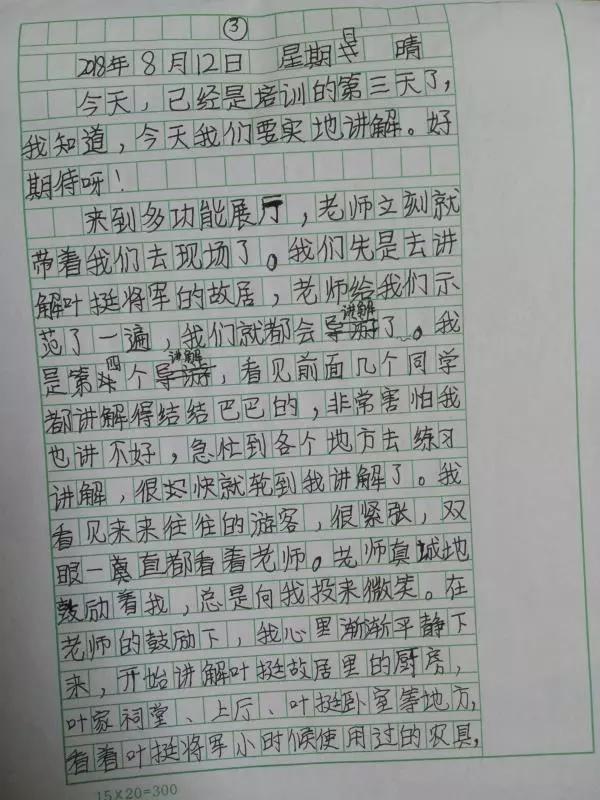 ③
2018年8月12日 星期日 晴
今天，已经是培训的第三天了，
我知道，今天我们要实地讲解。好
期待呀！
来到多功能展厅，老师立刻就
带着我们去现场了。我们先是去讲
解叶挺将军的故居，老师给我们示
范了一遍，我们就都会讲解了。我
是第四个讲解，看见前面几个同学
都讲解得结结巴巴的，非常害怕我
也讲不好，急忙到各个地方去练习
讲解，很快就轮到我讲解了。我
看见来来往往的游客，很紧张，双
眼一直都看着老师。老师真诚地
鼓励着我，总是向我投来微笑。在
老师的鼓励下，我心里渐渐平静下
来，开始讲解叶挺故居里的厨房，
叶家祠堂、上厅、叶挺卧室等地方，
看着叶挺将军小时候使用过的农具，
15×20=300